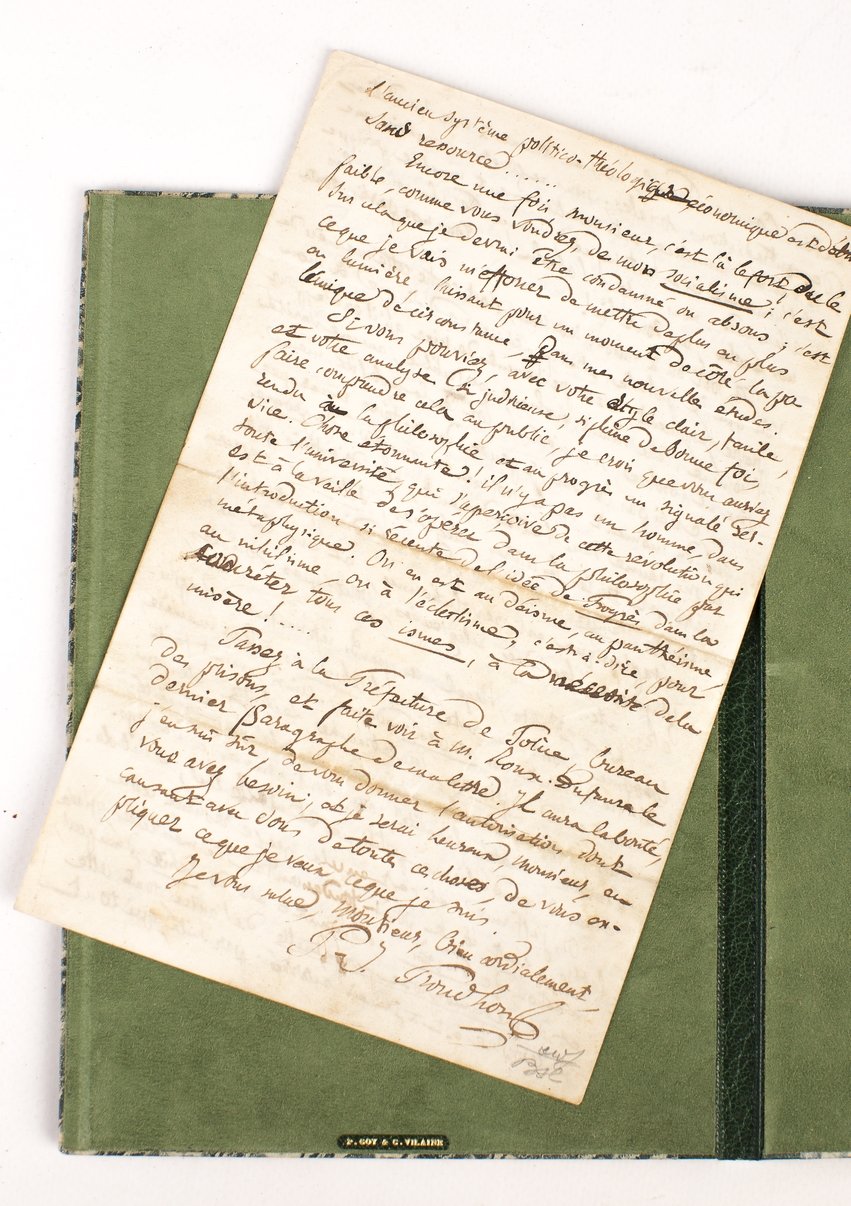 l'ancien système politico-théologique économique est détru
Sans ressource......
Encore une fois, monsieur, c'est là le fort ou le
faible, comme vous voudrez, de mon socialisme ; c'est
sur cela que je devrai être condamné ou absous ; c'est
ce que je vais m'efforcer de mettre de plus en plus
en lumière, laissant pour un moment de côté la po
lémique de circonstance, dans mes nouvelles études.
Si vous pouviez, avec votre style clair, facile,
et votre analyse si judicieuse, si pleine de bonne foi,
faire comprendre cela au public, je crois que vous auriez
rendu à la philosophie et au progrès un signalé ser-
vice. Chose étonnante ! il n'y a pas un homme, dans
toute l'université, qui s'aperçoive de cette révolution qui
est à la veille de s'opérer dans la philosophie par
l'introduction si récente de l'idée de Progrès dans la
métaphysique. On en est au déisme, au panthéisme
au nihilisme, ou à l'éclectisme, c'est à dire, pour
concréter tous ces ismes, à la nécessité de la
misère !....
Passez à la Préfecture de Police, bureau
des prisons, et faite voir à m. Roux-Dufour le
dernier paragraphe de ma lettre. Il aura la bonté,
j'en suis sûr de vous donner l'autorisation dont
vous avez besoin ; et je serai heureux, monsieur, en
causant avec vous de toutes ces choses, de vous ex-
pliquer ce que je veux ce que je suis.
Je vous salue, monsieur, bien cordialement
P. J. Proudhon
P. GOY & C. VILAINE